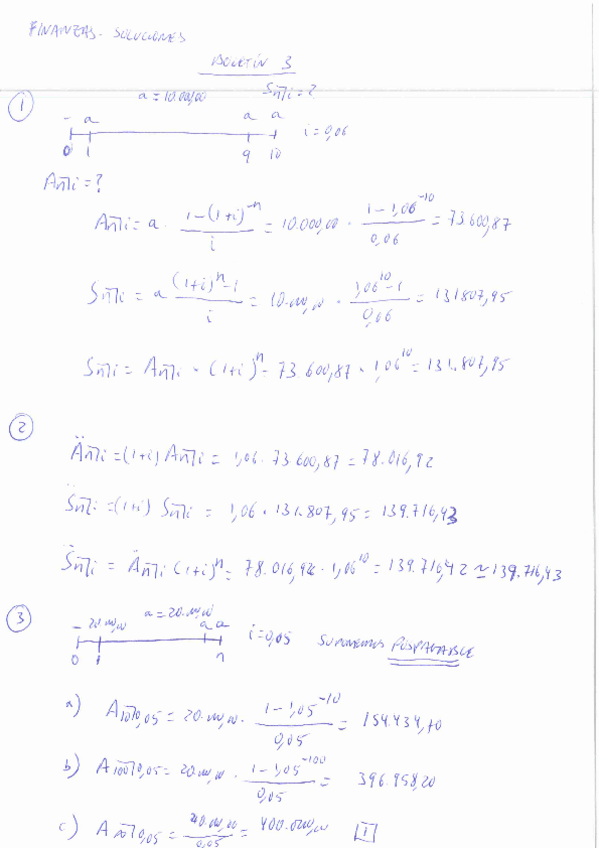 FINANZAS - SOLUCIONES
BOLETÍN 3
①
a = 10.000,00 Sn̅|i = ?
- a a a i = 0,06
0 1 9 10
An̅|i = ?
An̅|i = a · (1-(1+i)^-n)/i = 10.000,00 · (1-1,06^-10)/0,06 = 73.600,87
Sn̅|i = a ((1+i)^n-1)/i = 10.000,00 · (1,06^10-1)/0,06 = 131.807,95
Sn̅|i = An̅|i · (1+i)^n = 73.600,87 · 1,06^10 = 131.807,95
②
Än̅|i = (1+i) An̅|i = 1,06 · 73.600,87 = 78.016,92
S̈n̅|i = (1+i) Sn̅|i = 1,06 · 131.807,95 = 139.716,43
S̈n̅|i = Än̅|i (1+i)^n = 78.016,92 · 1,06^10 = 139.716,42 ≃ 139.716,43
③
a = 20.000,00
- 20.000,00 a a i = 0,05 SUPONEMOS POSPAGABLE
0 1 n
a) A10̅|0,05 = 20.000,00 · (1-1,05^-10)/0,05 = 154.434,70
b) A100̅|0,05 = 20.000,00 · (1-1,05^-100)/0,05 = 396.958,20
c) A∞̅|0,05 = 20.000,00/0,05 = 400.000,00 1